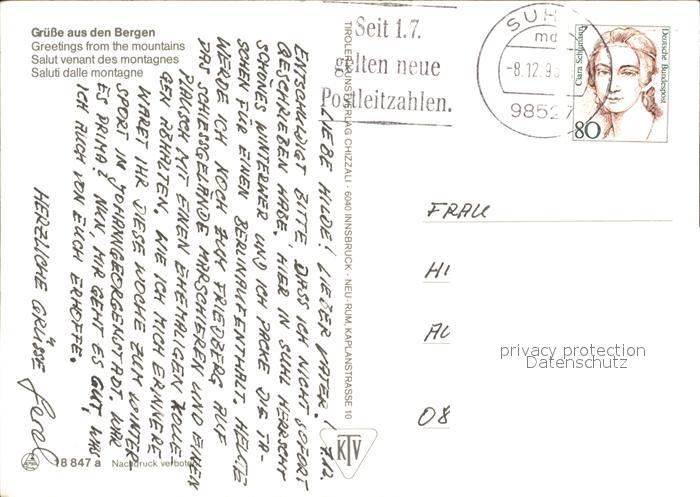 Grüße aus den Bergen
Greetings from the mountains
Salut venant des montagnes
Saluti dalle montagne
LIEBE HILDE! LIEBER VATER! 7.12.
ENTSCHULDIGT BITTE, DASS ICH NICHT SOFORT
GESCHRIEBEN HABE. HIER IN SUHL HERRSCHT
SCHÖNES WINTERWETTER UND ICH PACKE DIE TA-
SCHEN FÜR EINEN BERLINAUFENTHALT. HEUTE
WERDE ICH NOCH ZUM FRIEDBERG AUF
DAS SCHIESSGELÄNDE MARSCHIEREN UND EINEN
PLAUSCH MIT EINEN EHEMALIGEN KOLLE-
GEN ABHALTEN, WIE ICH MICH ERINNERE
WARET IHR DIESE WOCHE ZUM WINTER-
SPORT IN JOHANNGEORGENSTADT. WAR
ES PRIMA? NUN, MIR GEHT ES GUT, WAS
ICH AUCH VON EUCH ERHOFFE.
HERZLICHE GRÜSSE
18 847 a Nachdruck verboten
TIROLER KUNSTVERLAG CHIZZALI · 6040 INNSBRUCK - NEU-RUM, KAPLANSTRASSE 10
KTV
Seit 1.7.
gelten neue
Postleitzahlen.
SUHL
md
-8.12.93
98527
Deutsche Bundespost
Clara Schumann
80
FRAU
HI
AU
08
privacy protection
Datenschutz